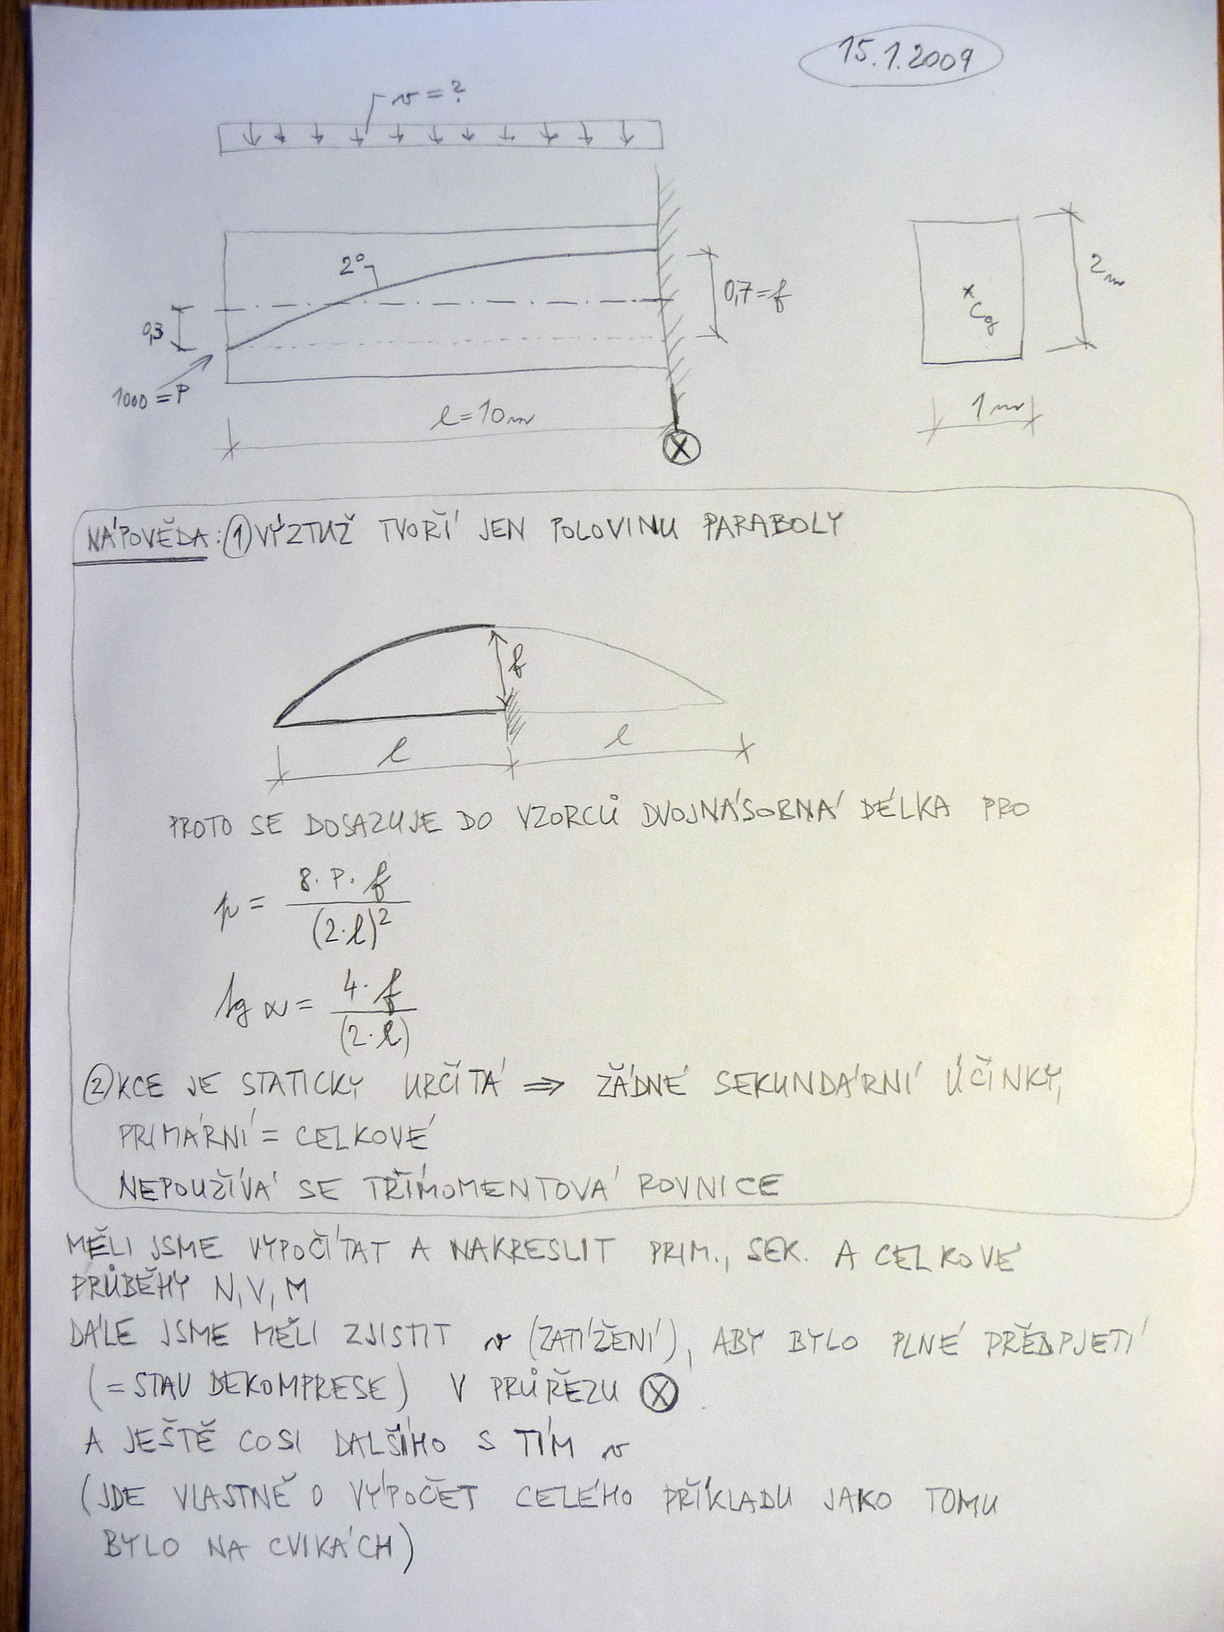 15.1.2009
v = ?
2°
0,3
0,7=f
1000 = P
l=10m
Cg
2m
1m
NÁPOVĚDA: ① VÝZTUŽ TVOŘÍ JEN POLOVINU PARABOLY
f
l
l
PROTO SE DOSAZUJE DO VZORCŮ DVOJNÁSOBNÁ DÉLKA PRO
p = 8·P·f / (2·l)²
tg α = 4·f / (2·l)
② KCE JE STATICKY URČITÁ ⇒ ŽÁDNÉ SEKUNDÁRNÍ ÚČINKY,
PRIMÁRNÍ = CELKOVÉ
NEPOUŽÍVÁ SE TŘÍMOMENTOVÁ ROVNICE
MĚLI JSME VYPOČÍTAT A NAKRESLIT PRIM., SEK. A CELKOVÉ
PRŮBĚHY N, V, M
DÁLE JSME MĚLI ZJISTIT v (ZATÍŽENÍ), ABY BYLO PLNÉ PŘEDPJETÍ
(= STAV DEKOMPRESE) V PRŮŘEZU ⊗.
A JEŠTĚ COSI DALŠÍHO S TÍM v
(JDE VLASTNĚ O VÝPOČET CELÉHO PŘÍKLADU JAKO TOMU
BYLO NA CVIKÁCH)